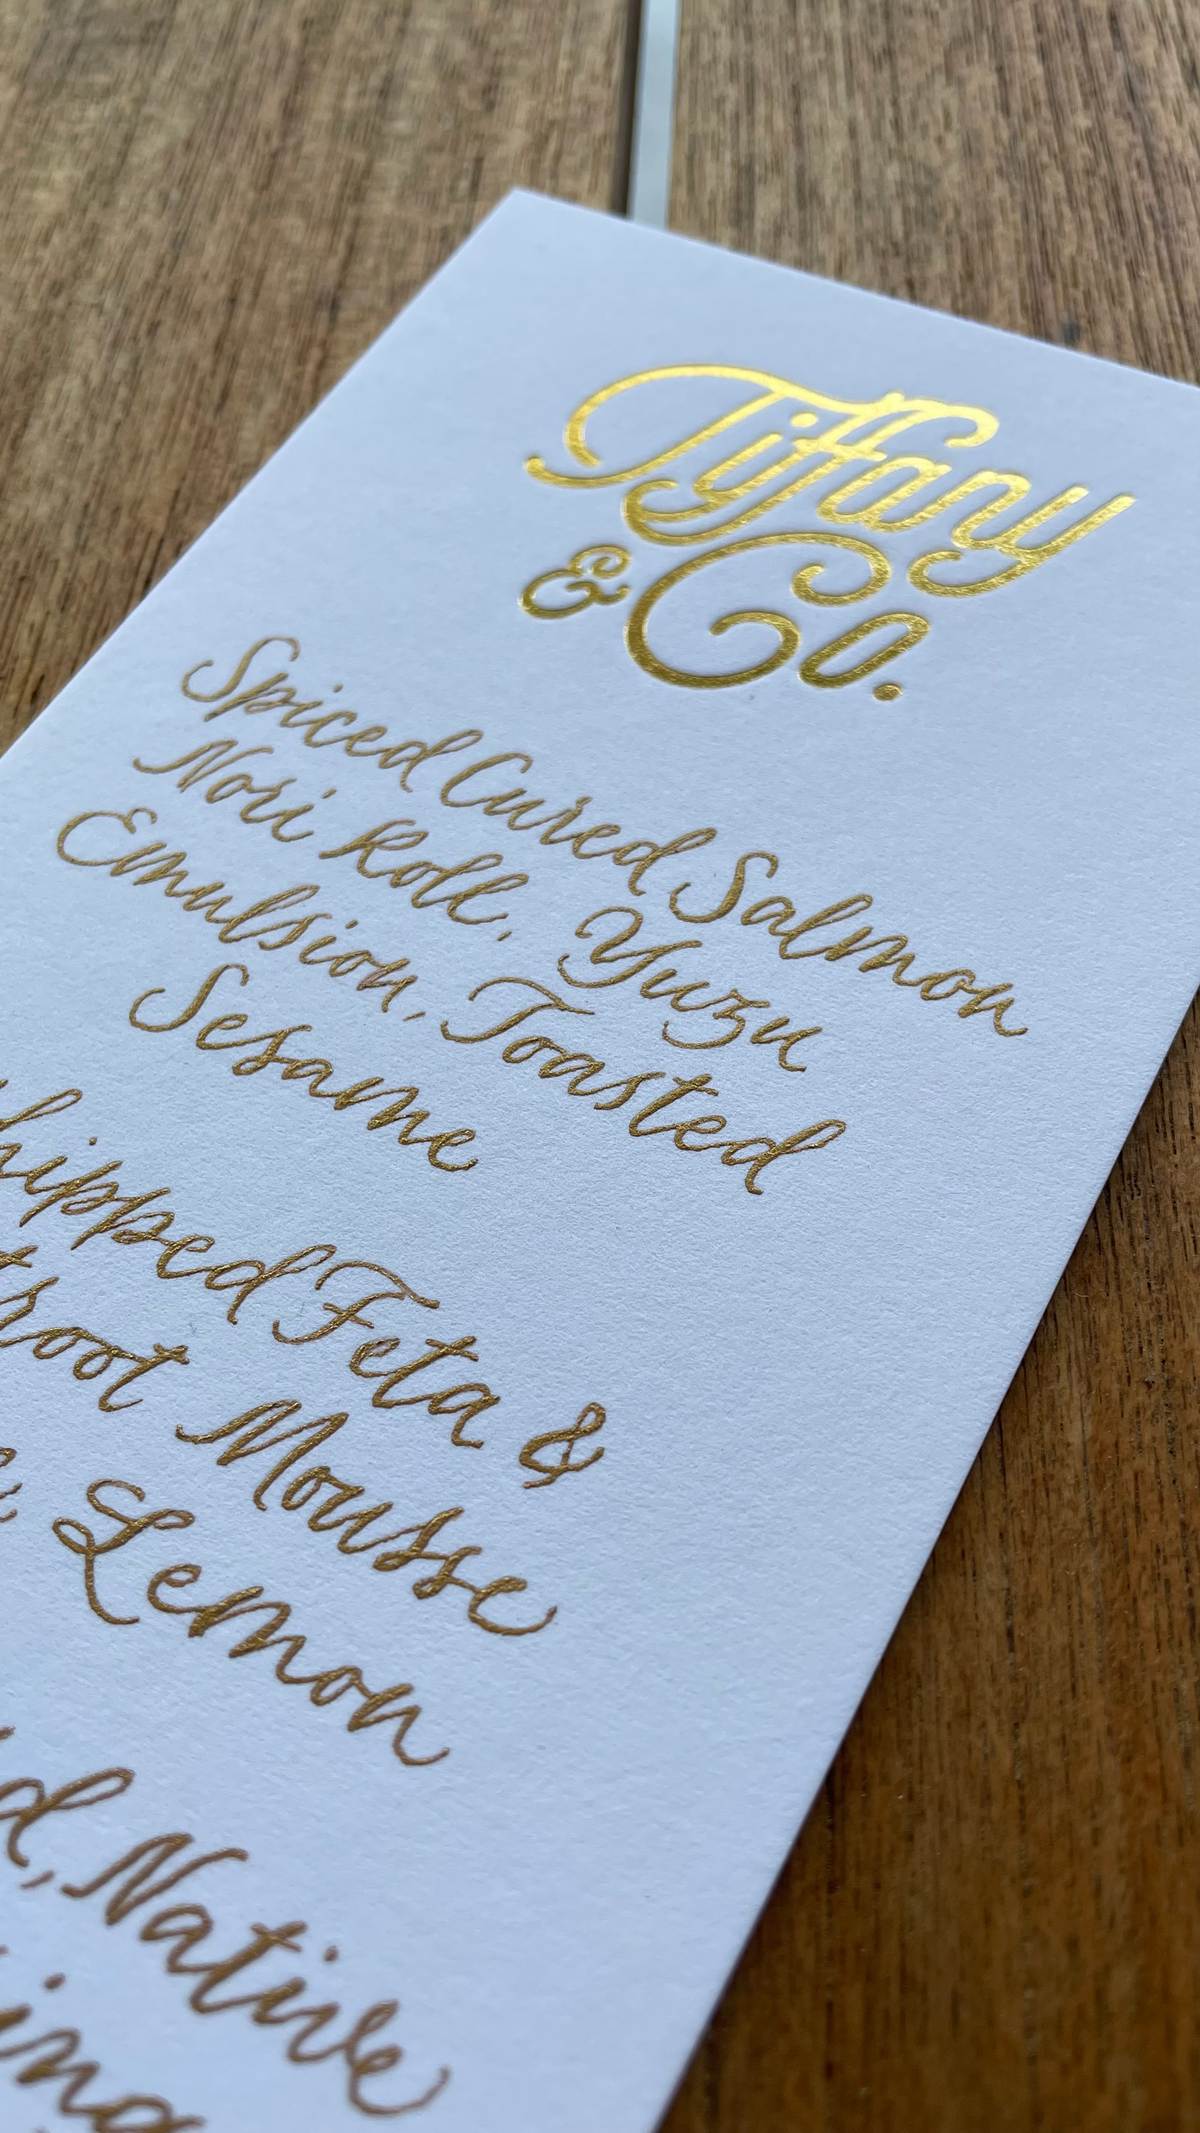 Tiffany
& Co.
Spiced Cured Salmon
Nori Roll, Yuzu
Emulsion, Toasted
Sesame
hipped Feta &
troot Mousse
Lemon
d, Native